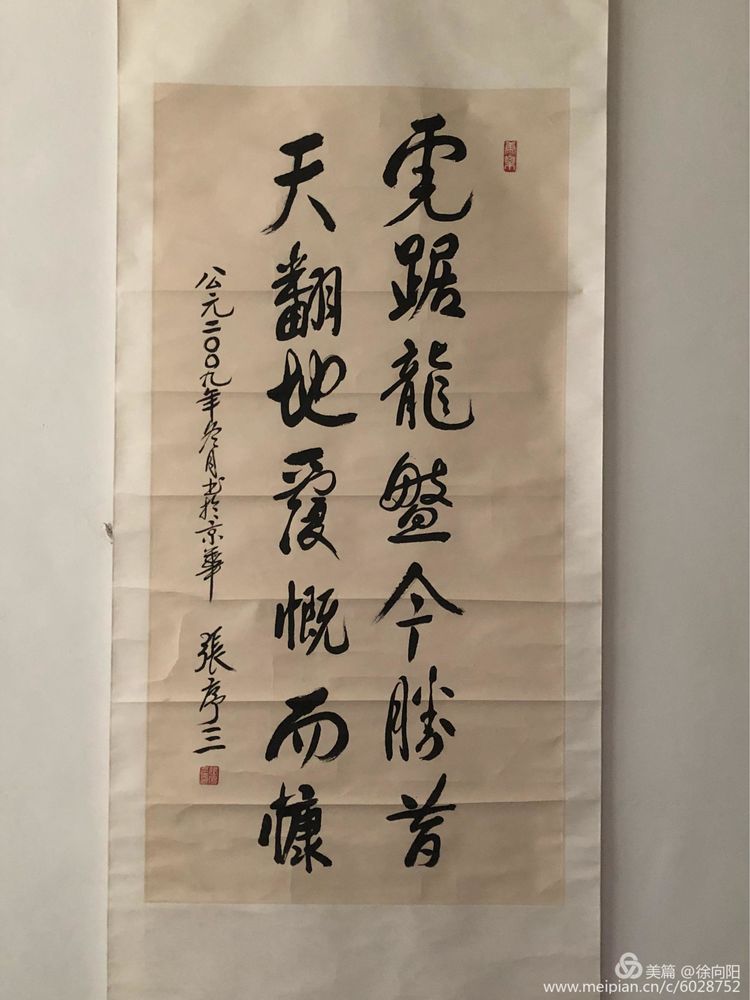 虎踞龍盤今勝昔
天翻地覆慨而慷
公元二〇〇九年冬月书於京華
張序三
美篇 @徐向阳
www.meipian.cn/c/6028752